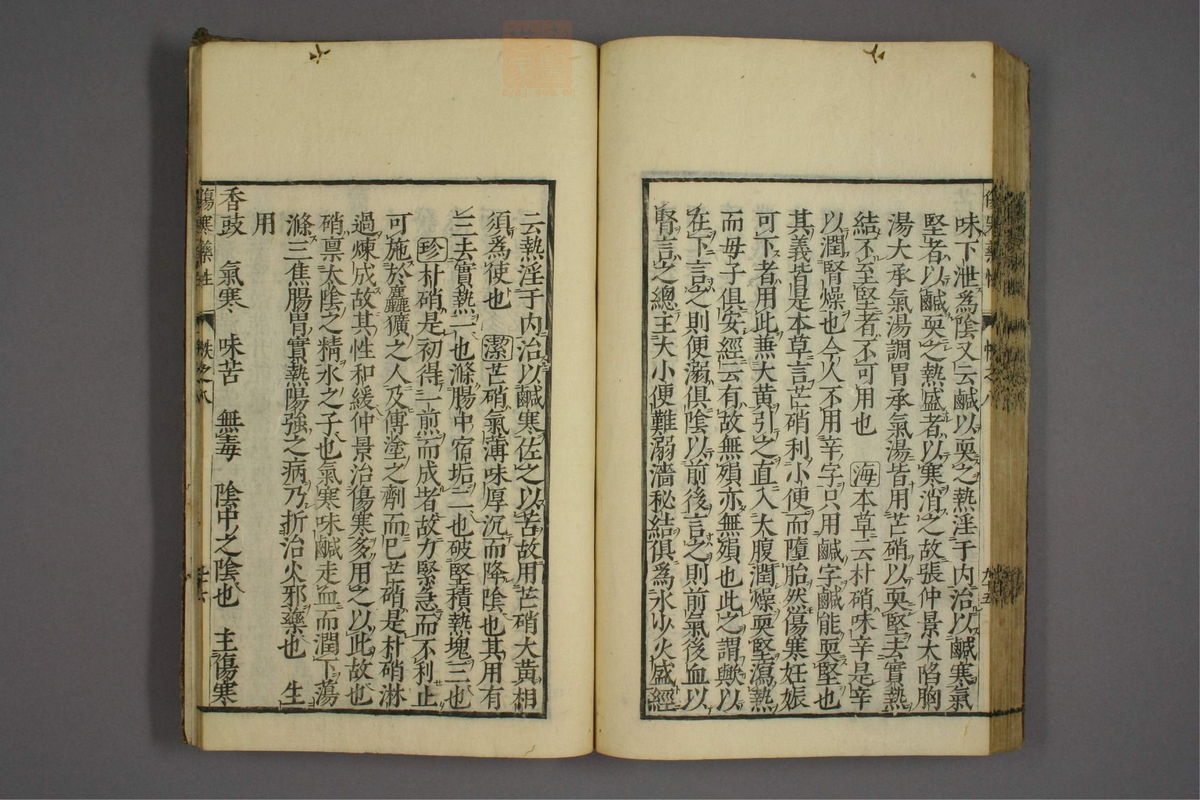 味下泄爲陰又云鹹以耎之熱淫于内治以鹹寒氣
堅者以鹹耎之熱盛者以寒消之故張仲景大陷胸
湯大承氣湯調胃承氣湯皆用芒硝以耎堅去實熱
結不至堅者不可用也 海本草云朴硝味辛是辛
以潤腎燥也今人不用辛字只用鹹字鹹能耎堅也
其義皆是本草言芒硝利小便而墮胎然傷寒妊娠
可下者用此兼大黄引之直入大腹潤燥耎堅瀉熱
而母子俱安經云有故無殞亦無殞也此之謂歟以
在下言之則便溺俱陰以前後言之則前氣後血以
腎言之總主大小便難溺濇秘結俱爲水少火盛經
云熱淫于内治以鹹寒佐之以苦故用芒硝大黄相
須爲使也 潔芒硝氣薄味厚沉而降陰也其用有
三去實熱一也滌腸中宿垢二也破堅積熱塊三也
珍朴硝是初得一煎而成者故力緊急而不利止
可施於麤獷之人及傅塗之劑而已芒硝是朴硝淋
過煉成故其性和緩仲景治傷寒多用之以此故也
硝禀太陰之精水之子也氣寒味鹹走血而潤下蕩
滌三焦腸胃實熱陽強之病乃折治火邪藥也 生
用
香豉 氣寒 味苦 無毒 陰中之陰也 主傷寒
傷寒藥性 帙之八